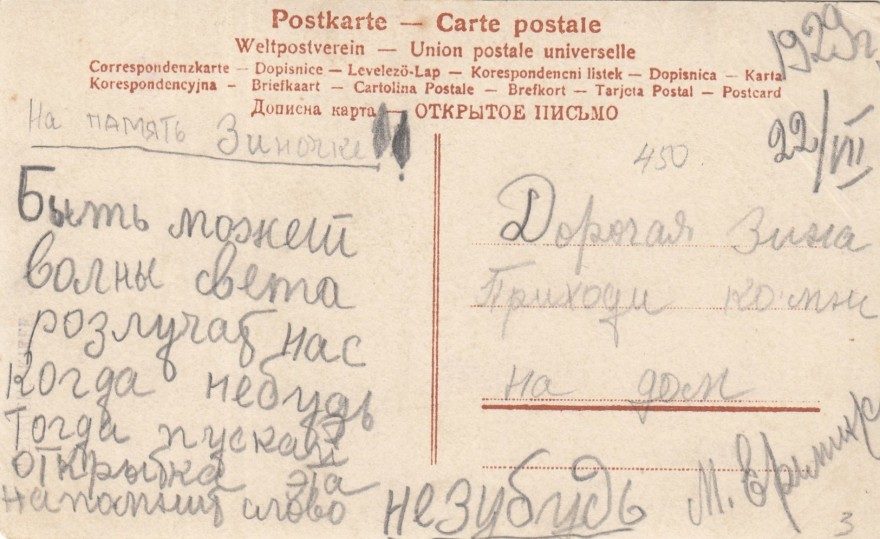 Postkarte — Carte postale
Weltpostverein — Union postale universelle
Correspondenzkarte — Dopisnice — Levelező-Lap — Korespondencni listek — Dopisnica — Karta
Korespondencyjna — Briefkaart — Cartolina Postale — Brefkort — Tarjeta Postal — Postcard
Дописна карта — ОТКРЫТОЕ ПИСЬМО
1929 г.
22/VII
На память Зиночке!!
Быть можеш
волны света
розлучат нас
Когда небудь
Тогда пускай
открытка эта
напомнит слово
незубудь
450
Дорогая Зина
Приходи комни
на дом
М.
3